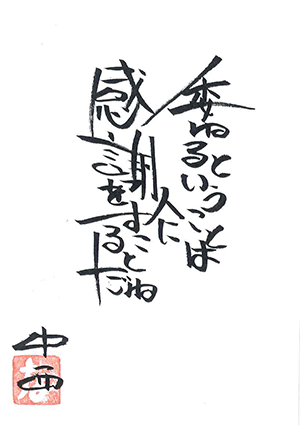 委ねるということは
人に
感謝をすることだね
中西